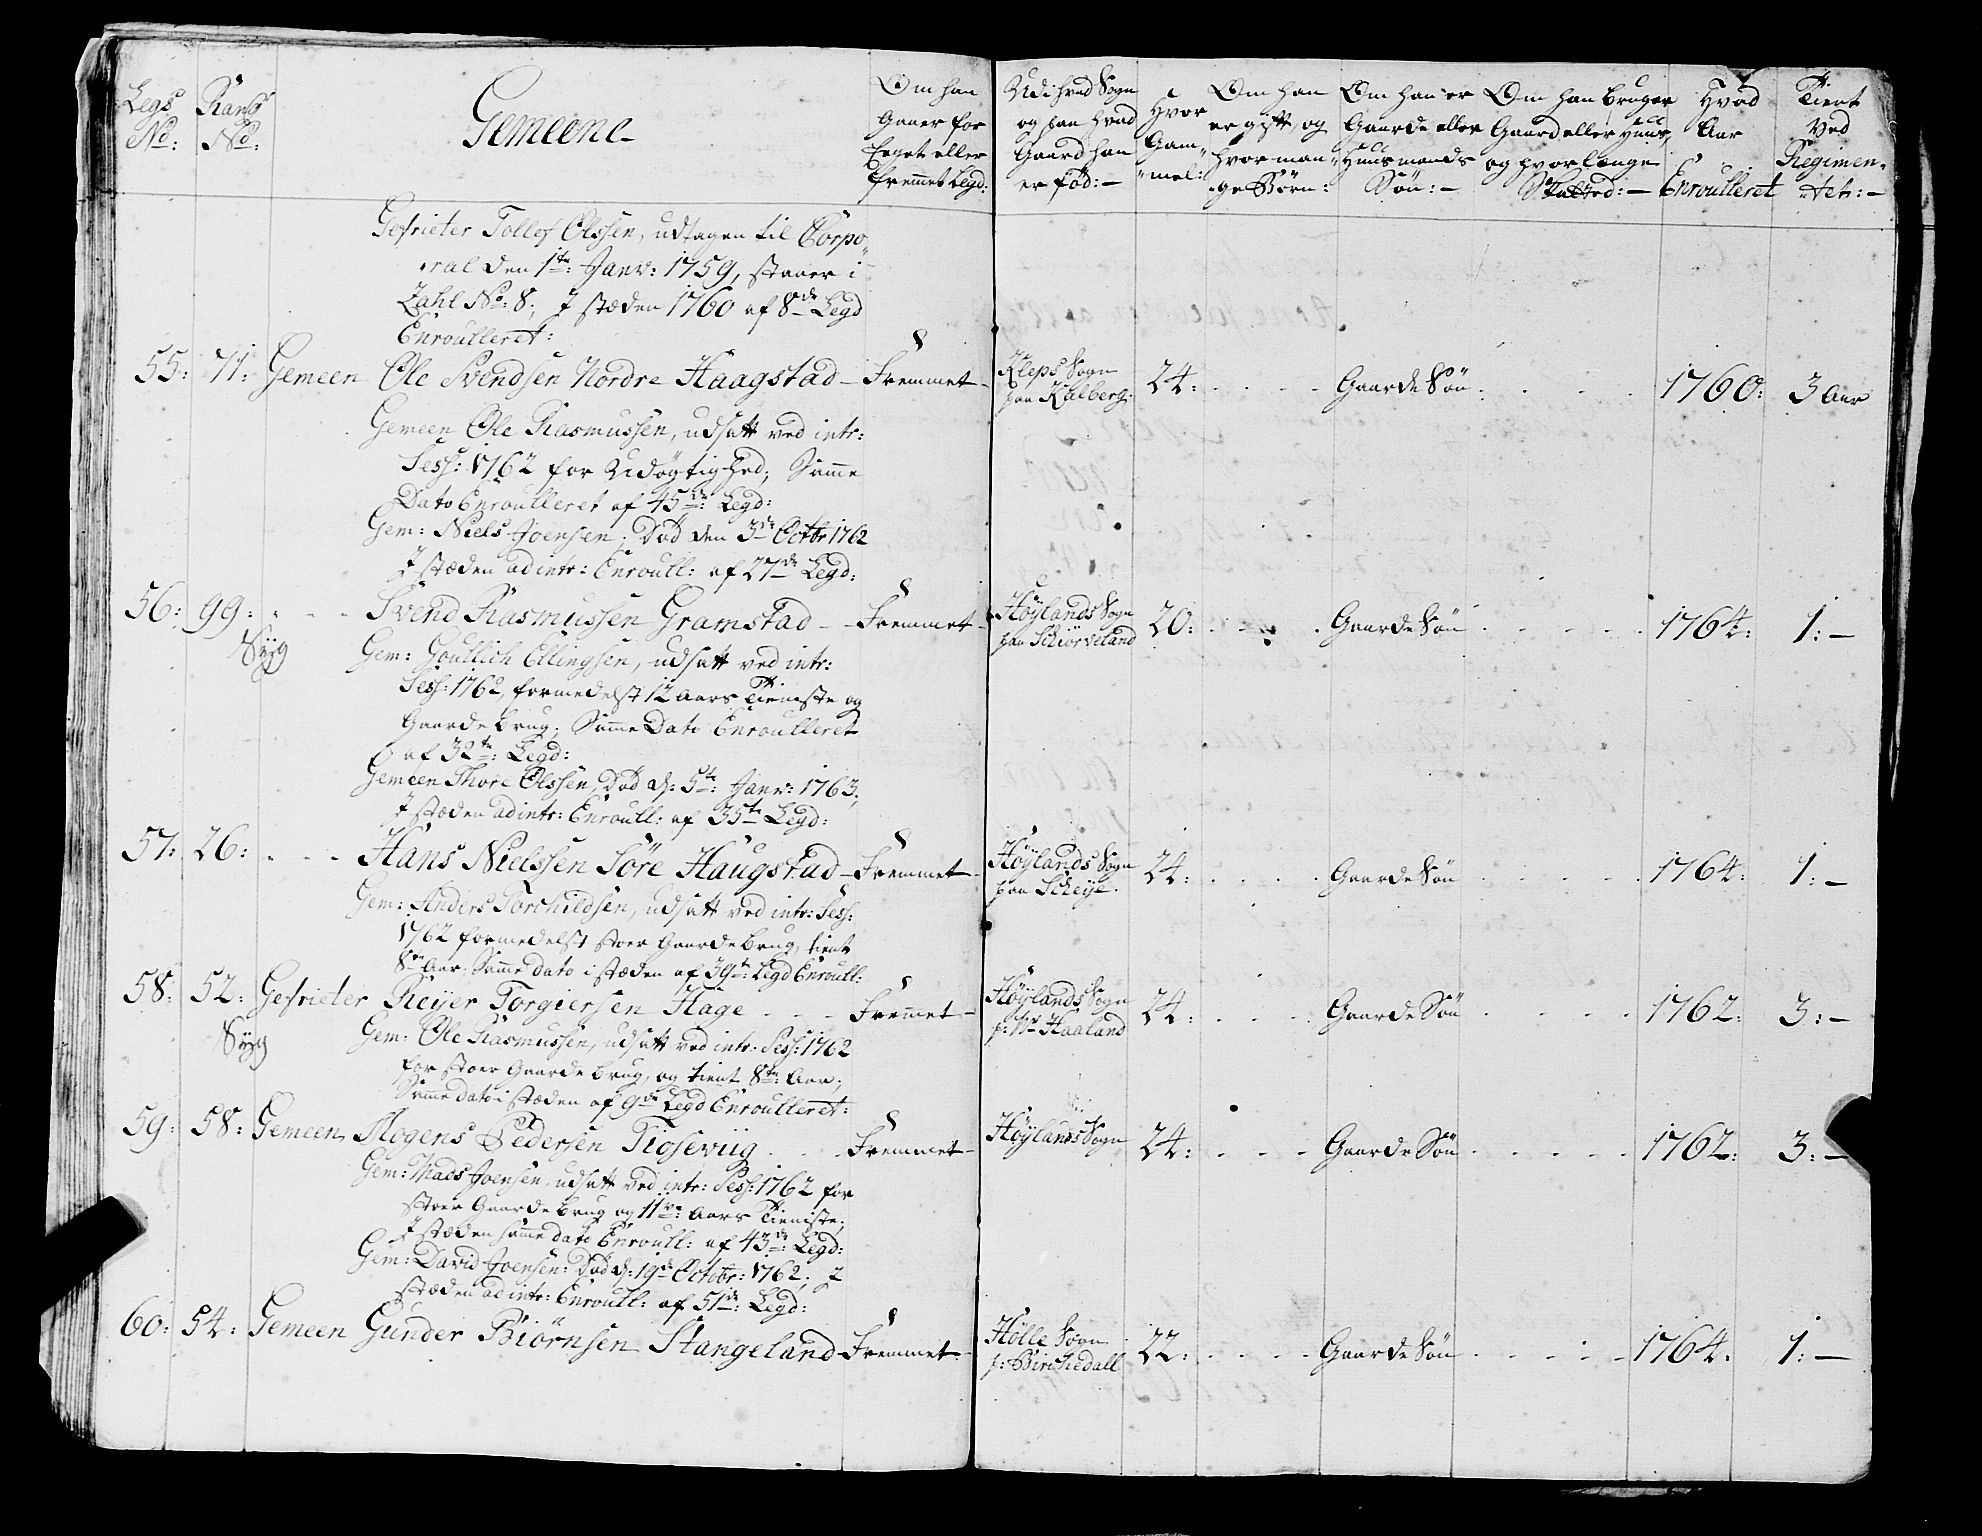 Legs No: Rans No: Gemeene Om han Gaaer for Eeget eller fremmet Legd: Udi hvad Sogn og paa hvad Gaard han er fød:— Hvor Gam„mel: Om han er gift, og hvor man„ge Børn: Om han er Gaarde eller Huusmands Søn:— Om han bruger Gaard eller Huus, og hvor længe Hvad Aar Enroulleret Tient ved Regimen„tet:—
Gefrieter Tollef Olssen, udtagen til Corpo„
ral den 1te: Janv: 1759, staaer i
Zahl No: 8; I stæden 1760 af 8de Legd
Enroulleret:
55: 71: Gemeen Ole Svendsen Nordre Haagstad — Fremmet — Kleps Sogn paa Kalberg: 24: Gaarde Søn 1760: 3 Aar
Gemeen Ole Rasmussen, udsatt ved intr:
Sess: 1762 for Udøgtighed; Samme
Dato Enroulleret af 45de: Legd:
Gem: Niels Joensen; Død den 3de Octbr 1762
I stæden ad intr: Enroull: af 27de Legd:
56: 99: Svend Rasmussen Gramstad — Fremmet — Høylands Sogn paa Schiørveland 20: Gaarde Søn 1764: 1:—
Syg
Gem: Goutlich Ellingsen, udsatt ved intr:
Sess: 1762, formedelst 12 Aars Tieniste og
Gaarde brug; Samme Dato Enroulleret
af 32te: Legd:
Gemeen Thore Olssen, Død d: 5te: Janv: 1763;
I stæden ad intr: Enroull: af 35te Legd:
57: 26: Hans Nielssen Søre Haugstad — Fremmet — Høylands Sogn paa Scheye. 24: Gaarde Søn 1764: 1:—
Gem: Anders Torchildsen, udsatt ved intr: Sess:
1762 formedelst stoer Gaarde brug, tient
8te Aar; Samme dato i stæden af 39te: Legd Enroull:
58: 52: Gefrieter Reijer Torgiersen Hage Fremmet — Høylands Sogn p: Haaland 24: Gaarde Søn 1762: 3:—
Syg
Gem: Ole Rasmussen, udsatt ved intr: Sess: 1762
for stoer Gaarde brug, og tient 8te: Aar;
Samme dato i stæden af 9de Legd Enroulleret:
59: 58: Gemeen Mogens Pedersen Tioseviig Fremmet — Høylands Sogn 24: Gaarde Søn 1762: 3:—
Gem: Mads Joensen, udsatt ved intr: Sess: 1762 for
stoer Gaarde brug og 11ve: Aars Tieniste;
I stæden samme dato Enroull: af 43de: Legd:
Gem: David Joensen: Død d: 19de Octobr: 1762; I
stæden ad intr: Enroull: af 51de: Legd:
60: 54: Gemeen Gunder Biørnsen Stangeland — Fremmet — Hølle Sogn 22: Gaarde Søn 1764: 1:—